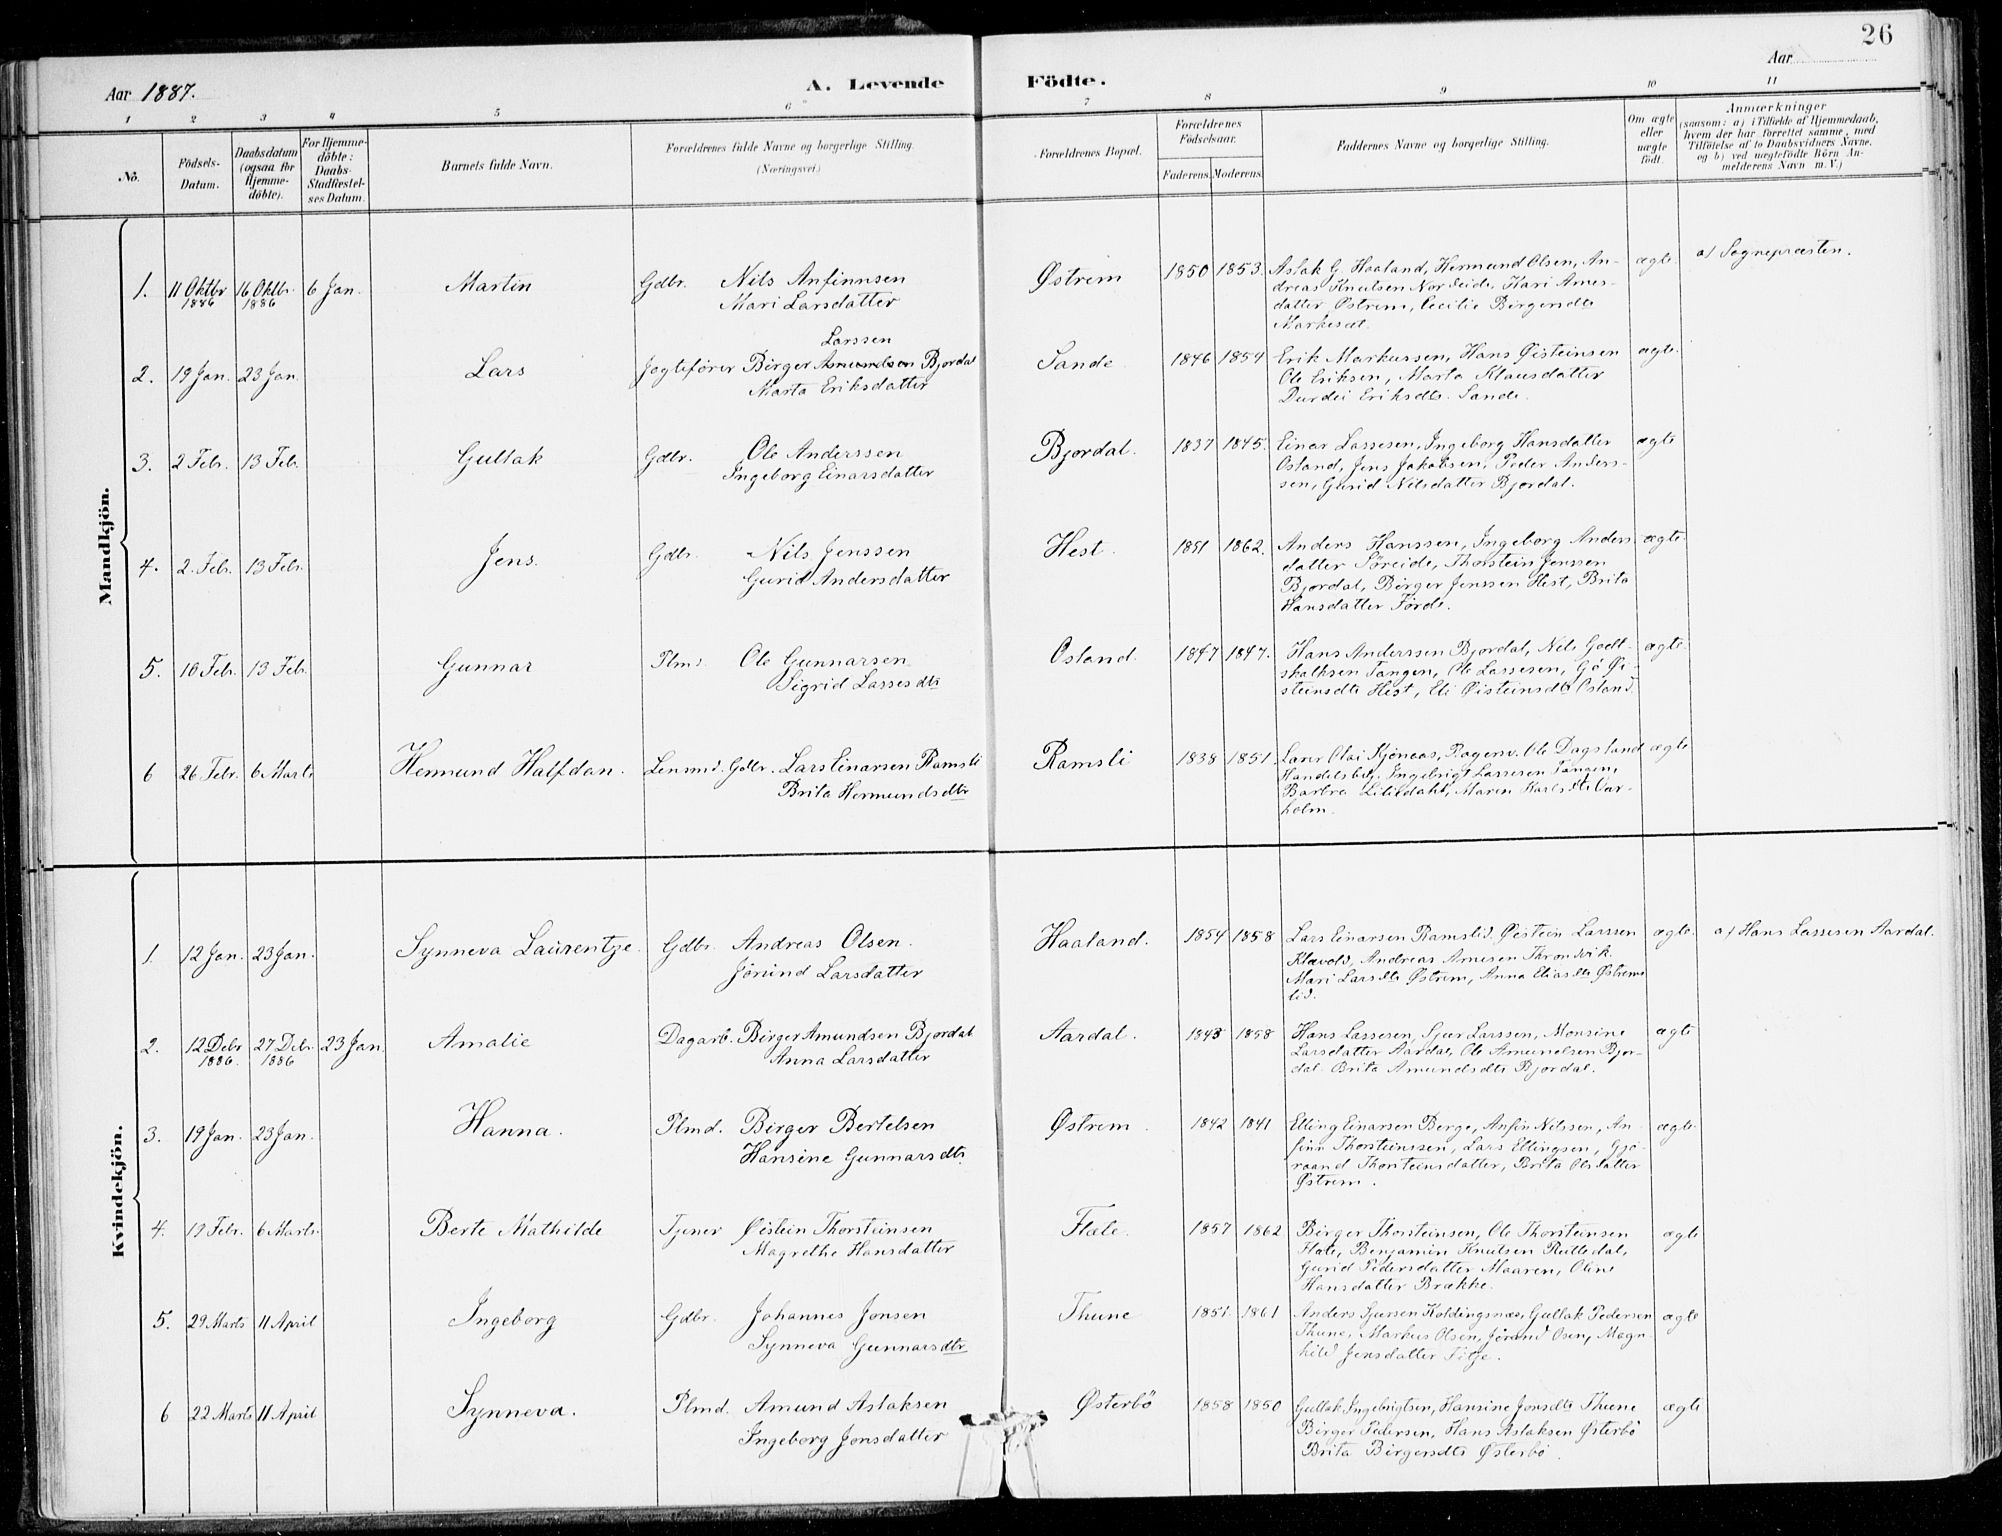 26
Aar 1887.
A. Levende Födte.
Aar
1 2 3 4 5 6 7 8 9 10 11
No.
Födsels-Datum.
Daabsdatum (ogsaa for Hjemme-döbte).
For Hjemme-döbte: Daabs-Stadfæstel-ses Datum.
Barnets fulde Navn.
Forældrenes fulde Navne og borgerlige Stilling.
(Næringsvei)
Forældrenes Bopæl.
Forældrenes Födselsaar.
Faderens. Moderens.
Faddernes Navne og borgerlige Stilling.
Om ægte eller uægte födt.
Anmærkninger
(saasom: a) i Tilfælde af Hjemmedaab,
hvem der har forrettet samme, med
Tilföielse af to Daabsvidners Navne,
og b) ved uægtefödte Börn An-
melderens Navn m. V.)
Mandkjön.
1. 11 Oktbr 1886 16 Oktbr. 1886 6 Jan. Martin Gdbr. Nils Anfinnsen Østrem 1850 1853. Aslak G. Haaland, Hermund Olsen, An- ægte. a/ Sognepræsten.
Mari Larsdatter dreas Knutsen Nordeide, Kari Arnes-
datter Østrem, Cecilie Birgersdtr
Larssen
2. 19 Jan. 23 Jan. Lars Jagtefører Birger Amundsen Bjordal Sande 1846 1854 Erik Markussen, Hans Øisteinsen ægte.
Marta Eriksdatter Ole Eriksen, Marta Klausdatter
Durdei Eriksdtr. Sande.
3. 2 Febr. 13 Feb. Gullak Gdbr. Ole Anderssen Bjordal. 1837 1845. Einar Lassesen, Ingeborg Hansdatter ægte
Ingeborg Einarsdatter Osland, Jens Jakobsen, Peder Anders-
sen, Gurid Nilsdatter Bjordal.
4. 2 Febr. 13 Febr. Jens. Gdbr. Nils Jenssen Hest. 1851 1862. Anders Hanssen, Ingeborg Anders- ægte.
Gurid Andersdatter datter Søreide, Thorstein Jenssen
Bjordal, Birger Jenssen Hest, Brita
Hansdatter Førde.
5. 10 Febr. 13 Febr. Gunnar Plmd. Ole Gunnarsen Osland. 1847 1847. Hans Anderssen Bjordal, Nils Godt- ægte.
Sigrid Lassesdtr skalksen Tangen, Ole Lassesen, Gjø Øi-
steinsdtr Hest, Eli Øisteinsdtr Osland.
6 26 Febr. 6 Marts Hermund Halfdan. Lensmd. Gdbr. Lars Einarsen Ramsli Ramsli 1838 1851. Lars Olai Kjøneas, Ragnv. Ole Dagsland ægte
Brita Hermundsdtr Handelsbtj. Ingebrigt Lassesen Tangen,
Barbra Lilledahl, Maren Karlsdtr Var-
holm.
Kvindekjön.
1. 12 Jan. 23 Jan. Synneva Laurentze. Gdbr. Andreas Olsen. Haaland. 1854 1858 Lars Einarsen Ramslid. Øistein Larssen ægte. a/ Hans Lassesen Aardal.
Jørund Larsdatter Klævold, Andreas Arnesen Throndvik.
Mari Larsdtr Østrem, Anna Eliasdtr Østrems
lid.
2. 12 Debr 1886. 27 Debr. 1886 23 Jan. Amalie Dagarb. Birger Amundsen Bjordal Aardal. 1848 1858 Hans Lassesen, Sjur Larssen, Monsine ægte
Anna Larsdatter Larsdatter Aardal, Ole Amundsen Bjor-
dal. Brita Amundsdtr Bjordal.
3. 19 Jan. 23 Jan. Hanna. Plmd. Birger Bertelsen Østrem. 1842 1841 Elling Einarsen Berge, Anfin Nilssen, An- ægte
Hansine Gunnarsdtr. finn Thorsteinssen, Lars Ellingsen, Gjø-
raand Thorsteinsdatter, Brita Olsdatter
Østrem.
4. 19 Febr. 6 Marts. Berte Mathilde Tjener Øistein Thorsteinsen Flæte. 1857 1862 Birger Thorsteinsen, Ole Thorsteinsen ægte
Magrethe Hansdatter Flæte, Benjamin Knutsen Rutledal,
Gurid Pedersdatter Maaren, Oline
Hansdatter Brække.
5. 29 Marts 11 April Ingeborg Gdbr. Johannes Jonsen Thune 1851 1861 Anders Sjursen Koldingsnæs, Gullak Pedersen ægte
Synneva Gunnarsdtr Thune, Markus Olsen, Jørand Osen, Magn-
hild Jensdatter Titje.
6 22 Marts 11 April Synneva. Plmd. Amund Aslaksen Østerbö 1858 1850 Gullak Ingebrigtsen, Hansine Jonsdtr Thune ægte
Ingeborg Jonsdatter Birger Pedersen, Hans Aslaksen Østerbö
Brita Birgersdtr Østerbö